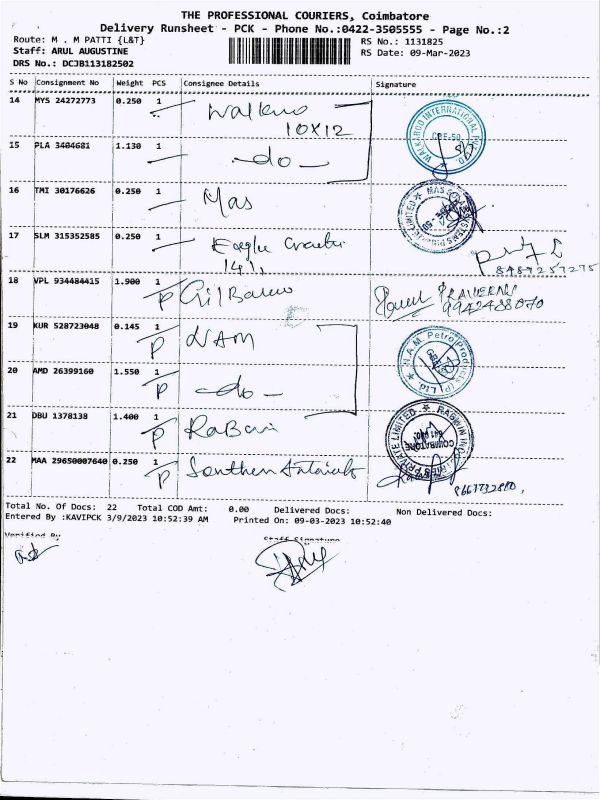 THE PROFESSIONAL COURIERS, Coimbatore
Delivery Runsheet - PCK - Phone No.:0422-3505555 - Page No.:2
Route: M . M PATTI {L&T}
RS No.: 1131825
Staff: ARUL AUGUSTINE
RS Date: 09-Mar-2023
DRS No.: DCJB113182502
S No Consignment No Weight PCS Consignee Details Signature
14 MYS 24272773 0.250 1
10X12
15 PLA 3404681 1.130 1 -do-
16 TMI 30176626 0.250 1 Mas
17 SLM 315352585 0.250 1 Eagle
18 VPL 934484415 1.900 1 P
9942488070
19 KUR 528723048 0.145 1 P NAM
20 AMD 26399160 1.550 1 P -do-
21 DBU 1378138 1.400 1 P
22 MAA 29650007640 0.250 1 P
WALKAROO INTERNATIONAL
N.A.M. Petro Products (P) Ltd.
PRIVATE LIMITED
COIMBATORE
Total No. Of Docs: 22 Total COD Amt: 0.00 Delivered Docs: Non Delivered Docs:
Entered By :KAVIPCK 3/9/2023 10:52:39 AM Printed On: 09-03-2023 10:52:40
Verified By Staff Signature